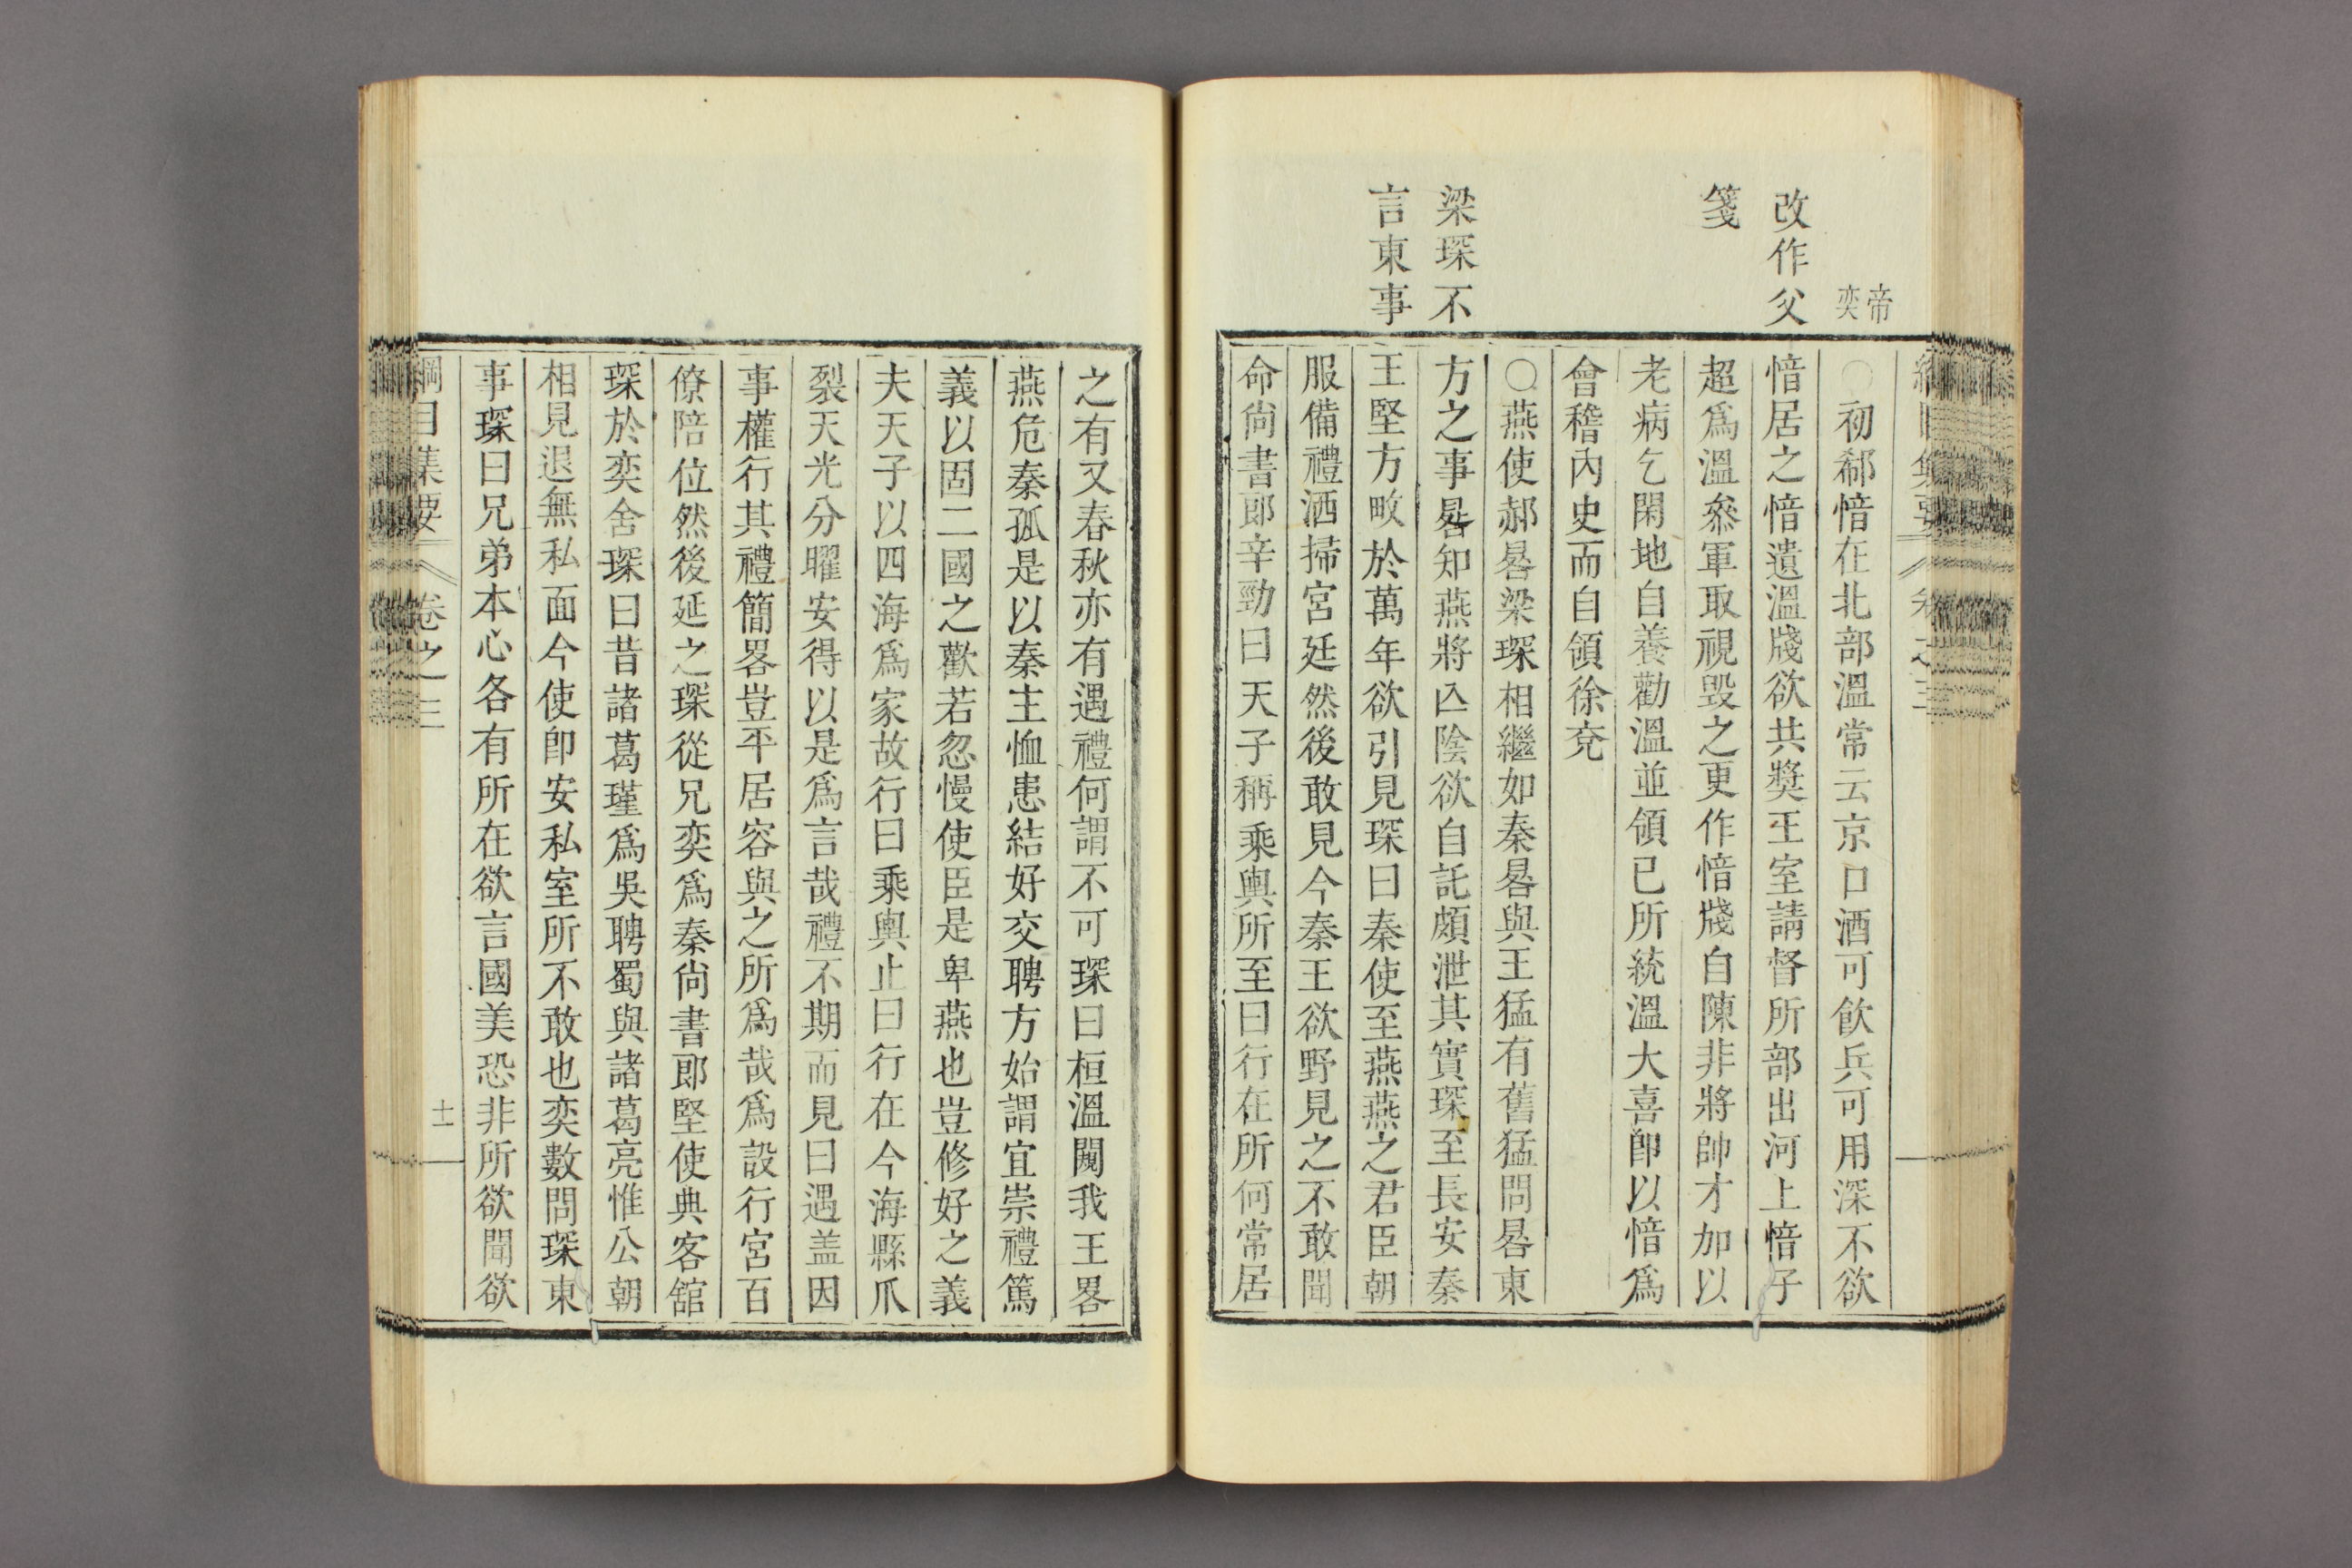 帝奕
改作父
箋
梁琛不
言東事
○初郗愔在北部溫常云京口酒可飲兵可用深不欲
愔居之愔遺溫牋欲共獎王室請督所部出河上愔子
超爲溫叅軍取視毀之更作愔牋自陳非將帥才加以
老病乞閑地自養勸溫並領已所統溫大喜卽以愔爲
會稽內史而自領徐兗
○燕使郝晷梁琛相繼如秦晷與王猛有舊猛問晷東
方之事晷知燕將亾陰欲自託頗泄其實琛至長安秦
王堅方畋於萬年欲引見琛曰秦使至燕燕之君臣朝
服備禮洒掃宮廷然後敢見今秦王欲野見之不敢聞
命尙書郎辛勁曰天子稱乘輿所至曰行在所何常居
之有又春秋亦有遇禮何謂不可琛曰桓溫闚我王畧
燕危秦孤是以秦主恤患結好交聘方始謂宜崇禮篤
義以固二國之歡若忽慢使臣是卑燕也豈修好之義
夫天子以四海爲家故行曰乘輿止曰行在今海縣爪
裂天光分曜安得以是爲言哉禮不期而見曰遇盖因
事權行其禮簡畧豈平居容與之所爲哉爲設行宮百
僚陪位然後延之琛從兄奕爲秦尙書郎堅使典客舘
琛於奕舍琛曰昔諸葛瑾爲吳聘蜀與諸葛亮惟公朝
相見退無私面今使卽安私室所不敢也奕數問琛東
事琛曰兄弟本心各有所在欲言國美恐非所欲聞欲
綱目集要 卷之三 十一